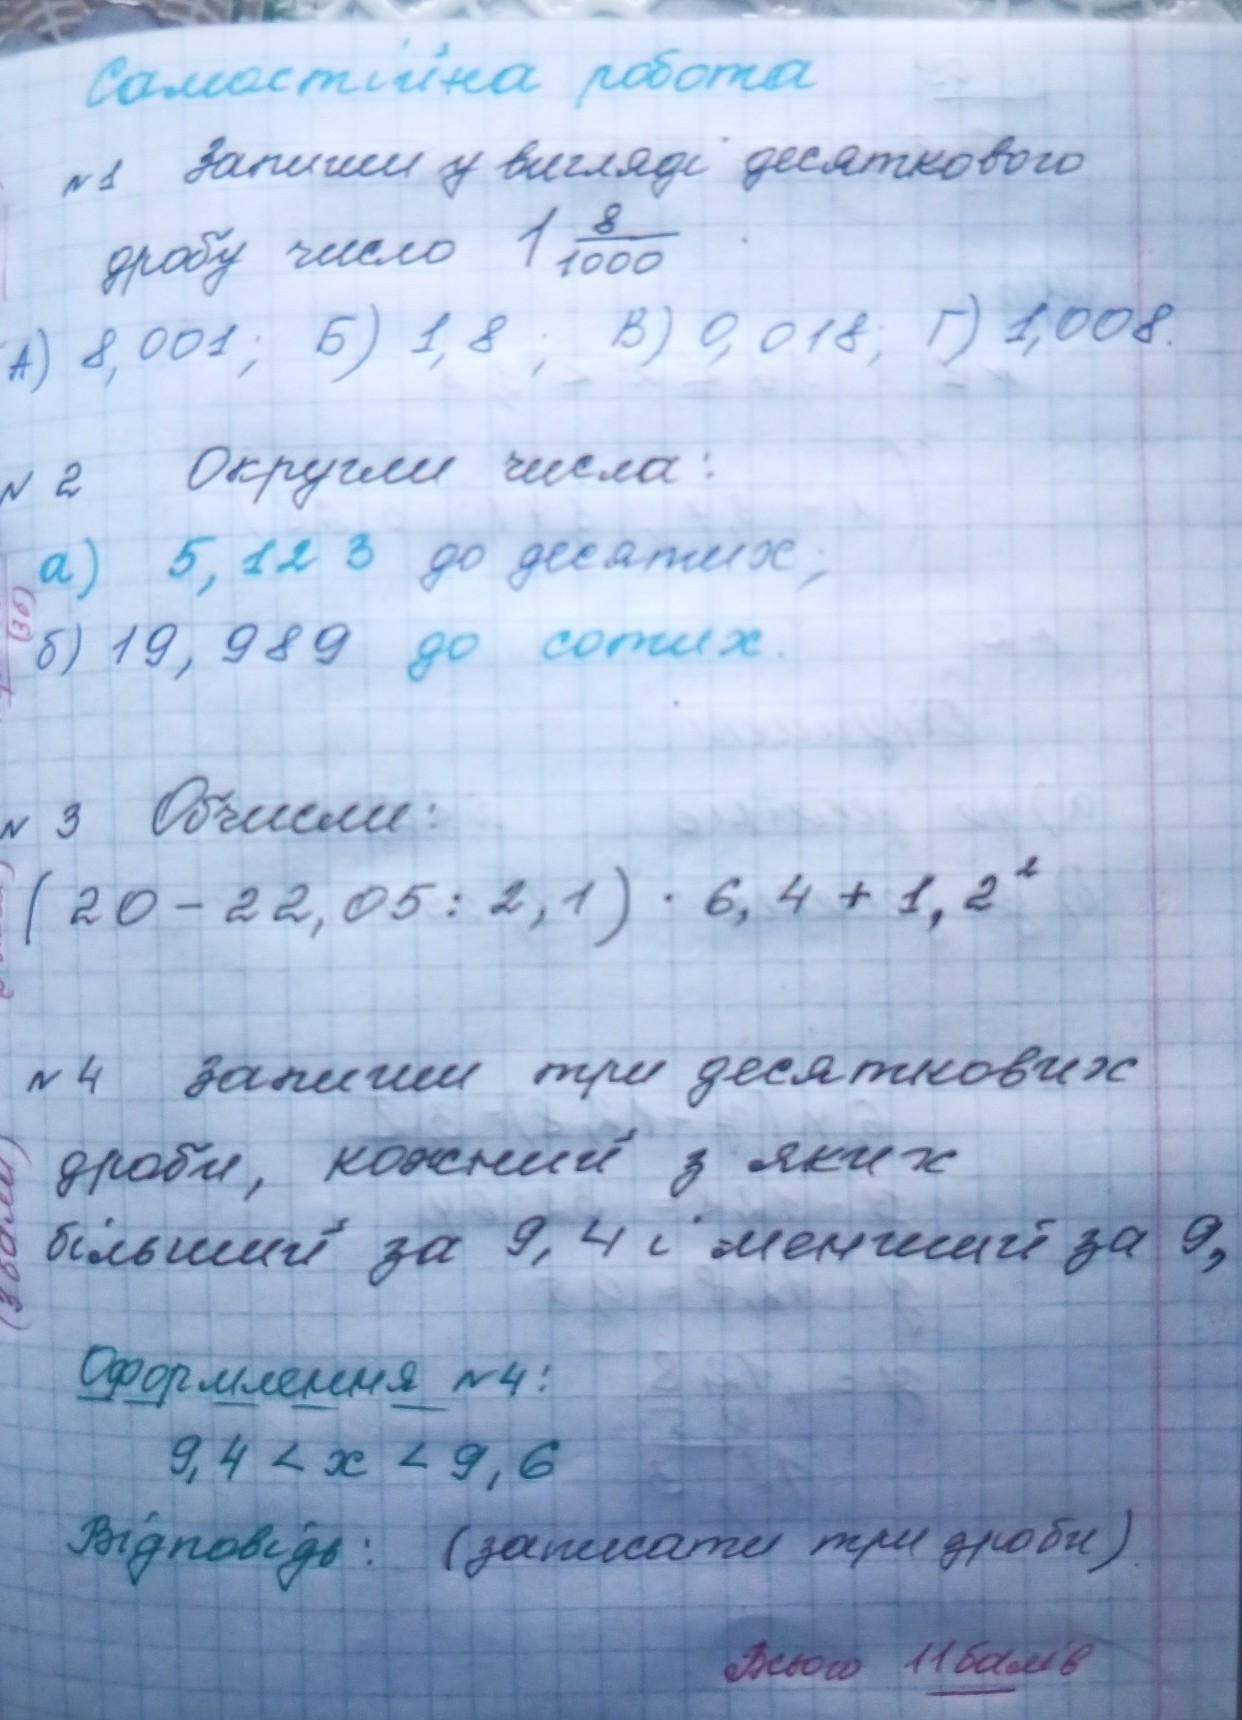 Самостійна робота
№1 Запиши у вигляді десяткового
дробу число 1 8/1000
А) 8,001; Б) 1,8; В) 0,018; Г) 1,008.
№2 Округли числа:
а) 5,123 до десятих;
(3б)
б) 19,989 до сотих.
№3 Обчисли:
(20 - 22,05 : 2,1) · 6,4 + 1,2²
№4 Запиши три десяткових
дроби, кожний з яких
більший за 9,4 і менший за 9,
(3 бали)
Оформлення №4:
9,4 < х < 9,6
Відповідь: (записати три дроби).
Всього 11 балів